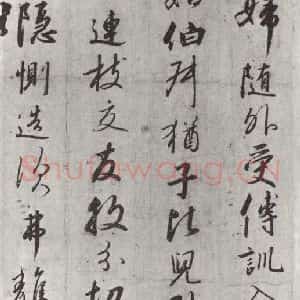 婦随外受傅訓入
姑伯叔猶子比兒
連枝交友投分切
隱惻造次弗離
Shufawang.CN